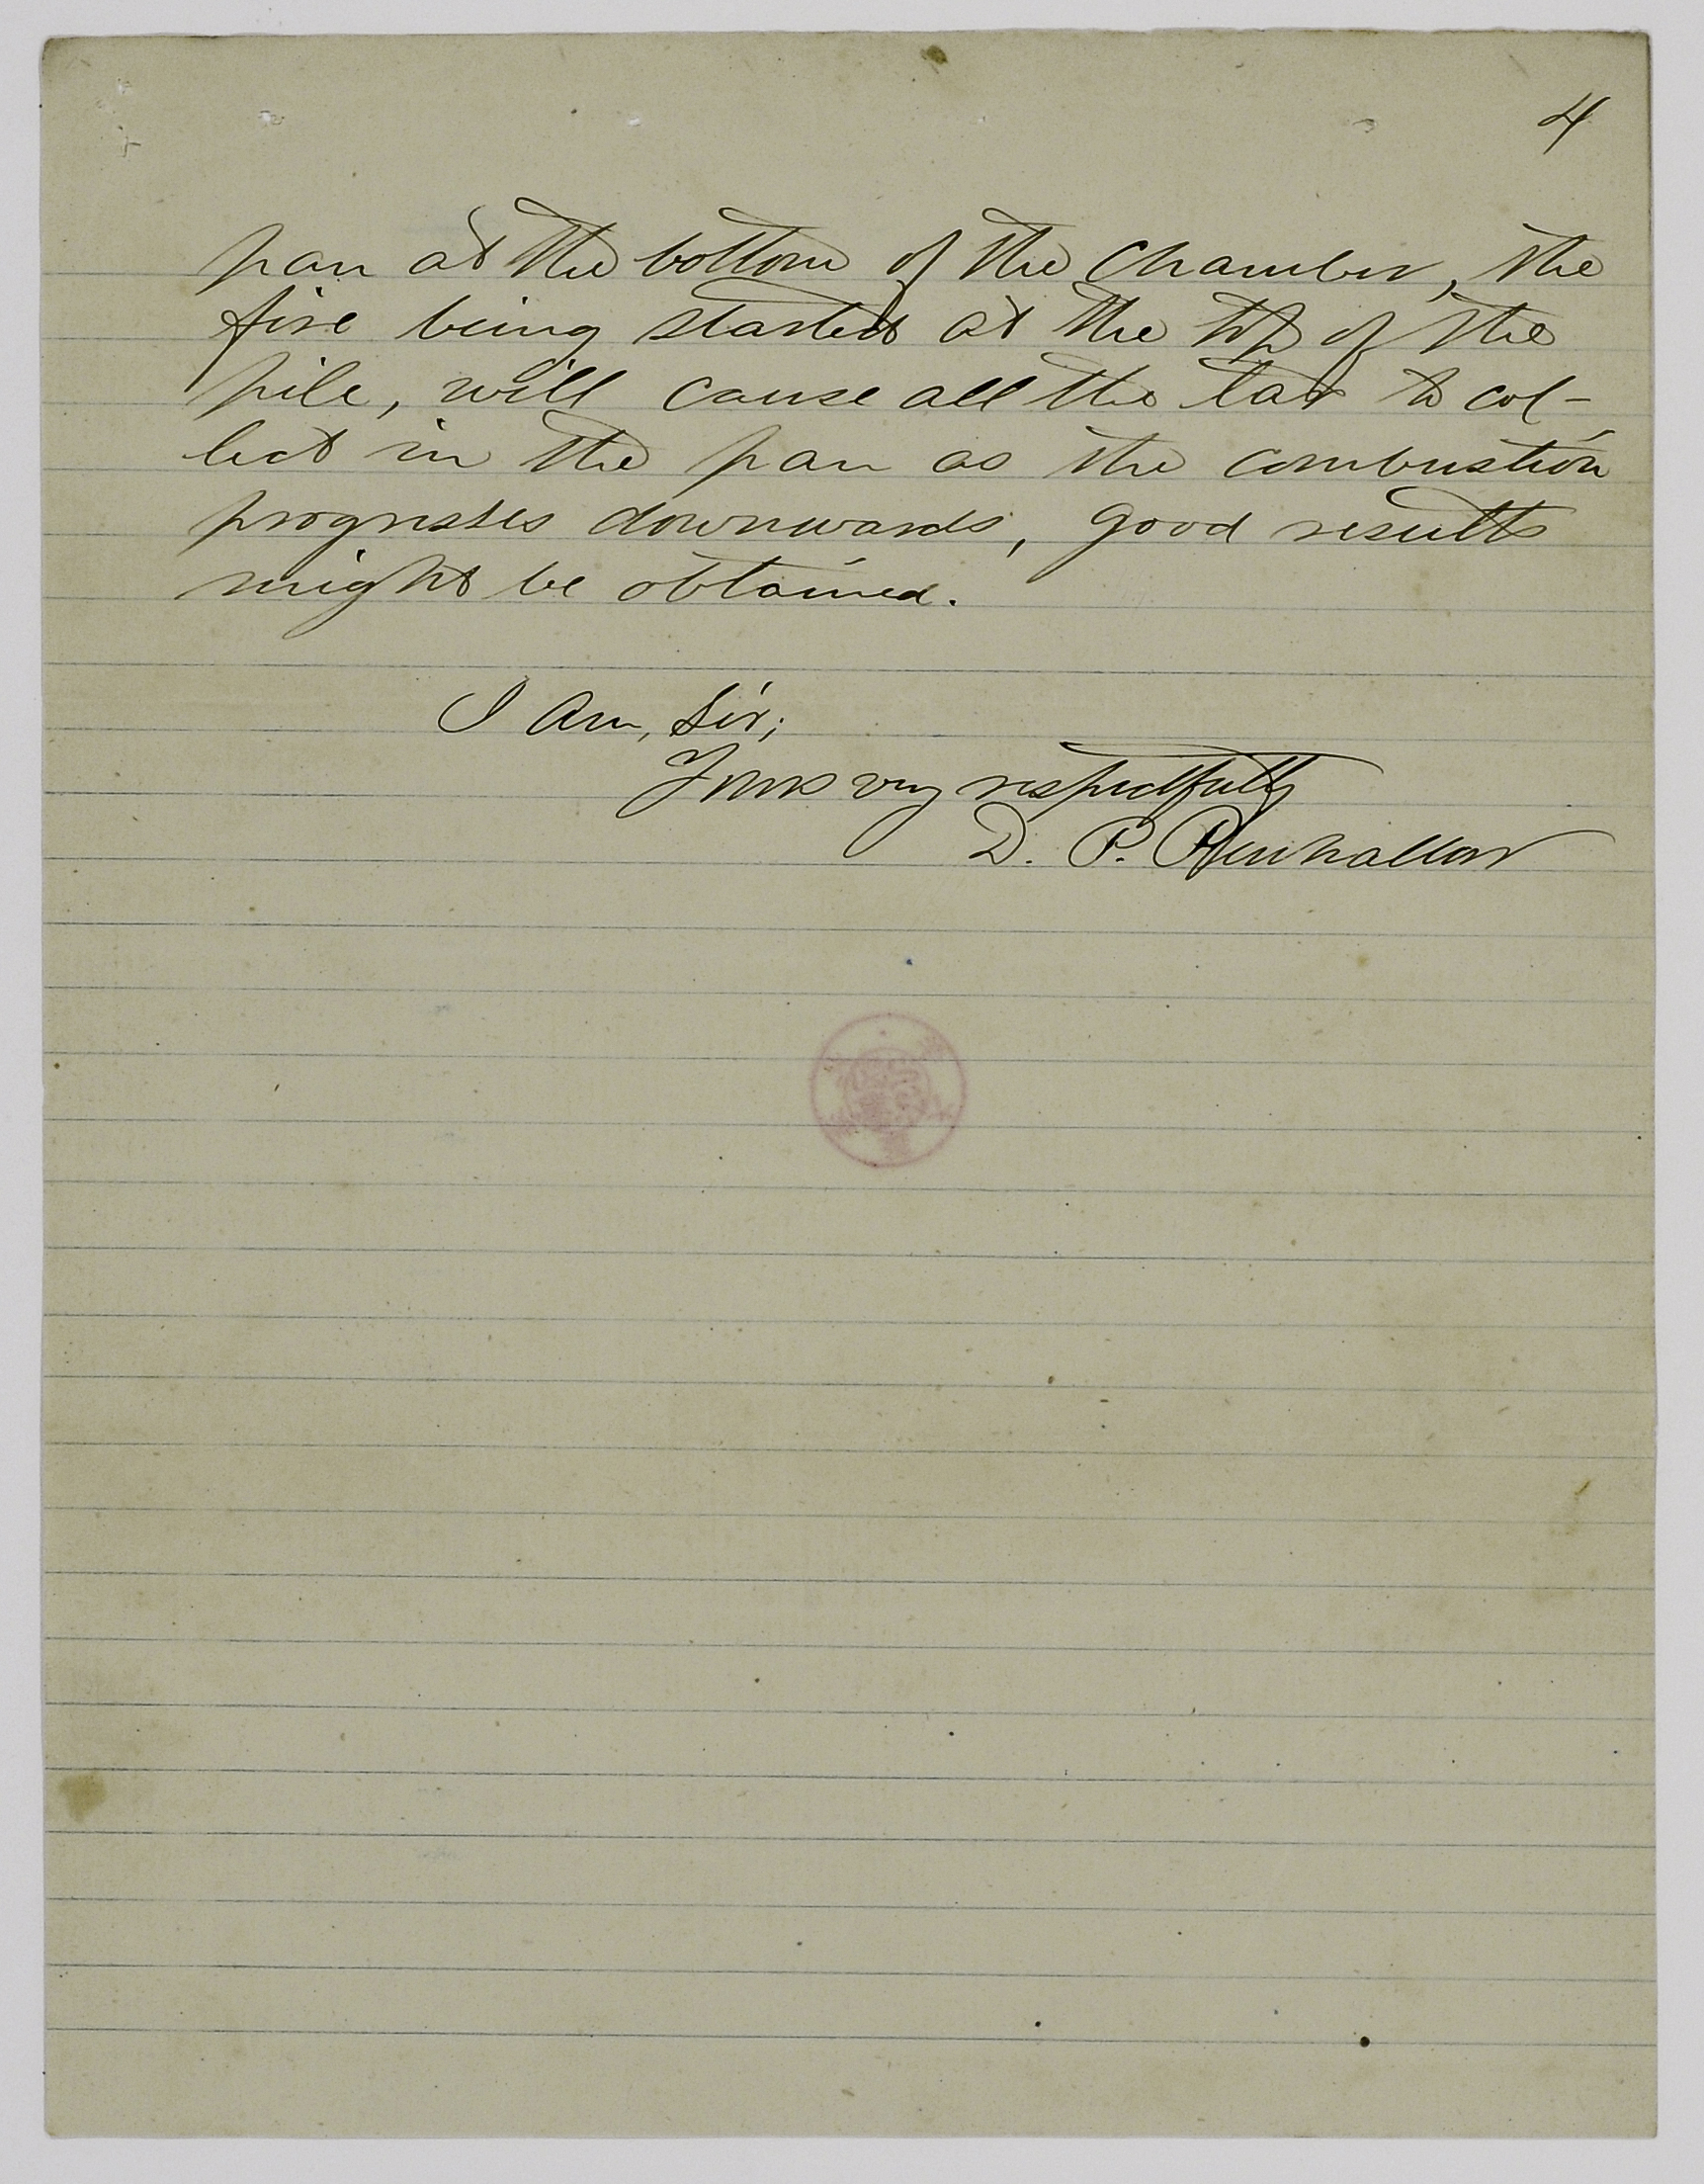 4
pan at the bottom of the chamber, the
fire being started at the top of the
pile, will cause all the tar to col-
lect in the pan as the combustion
progresses downwards, good results
might be obtained.
I Am, Sir;
Yours very respectfully
D. P. Penhallow